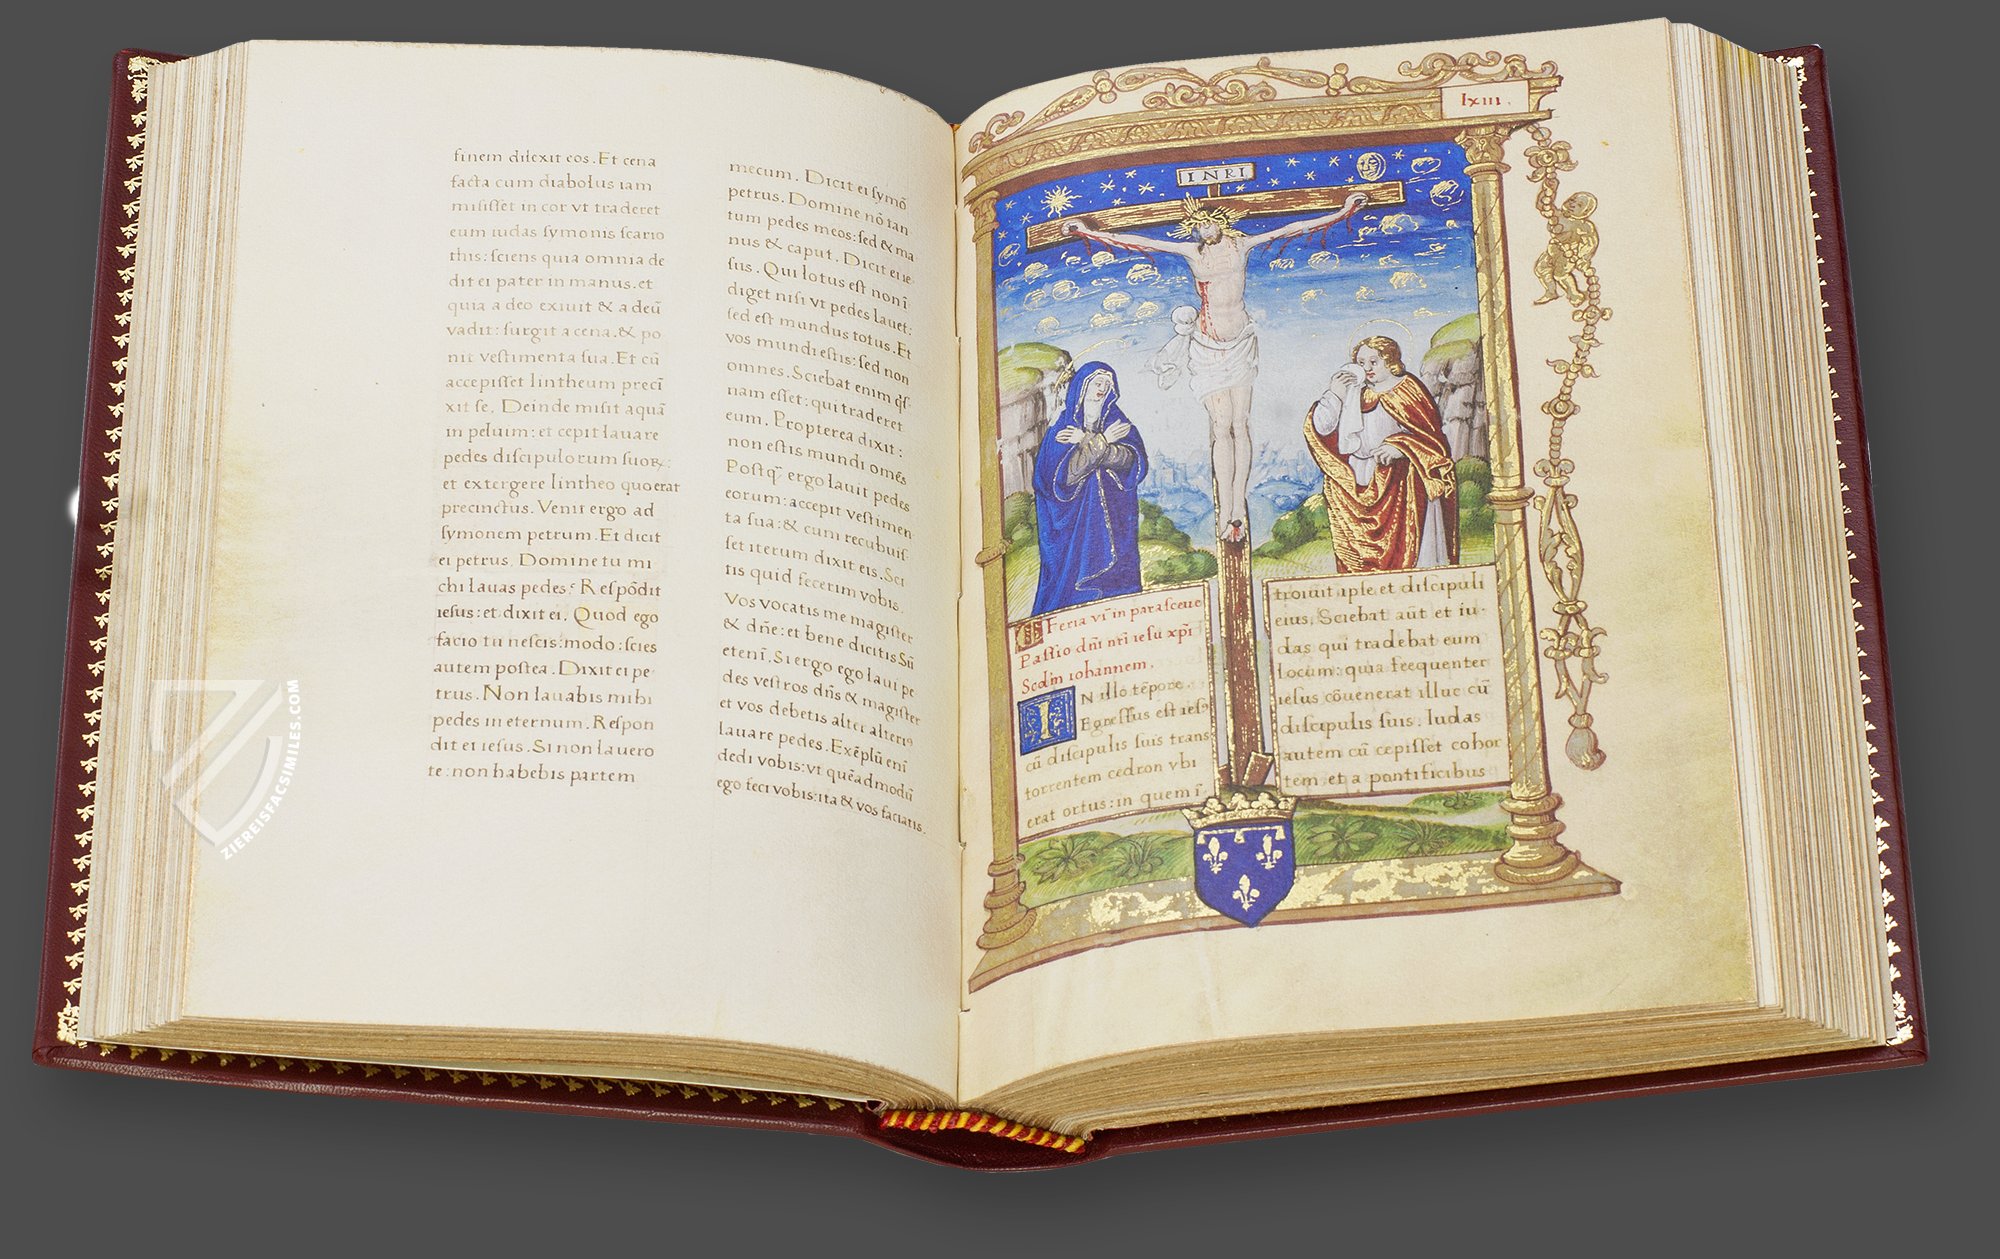 finem dilexit eos. Et cena
facta cum diabolus iam
misisset in cor vt traderet
eum iudas symonis scario
this: sciens quia omnia de
dit ei pater in manus. et
quia a deo exiuit & a deū
vadit: surgit a cena. & po
nit vestimenta sua. Et cū
accepisset lintheum preci
xit se. Deinde misit aquā
in peluim: et cepit lauare
pedes discipulorum suoꝝ:
et extergere lintheo quo erat
precinctus. Venit ergo ad
symonem petrum. Et dicit
ei petrus. Domine tu mi
chi lauas pedes? Respōdit
iesus: et dixit ei. Quod ego
facio tu nescis: modo: scies
autem postea. Dixit ei pe
trus. Non lauabis mihi
pedes in eternum. Respon
dit ei iesus. Si non lauero
te: non habebis partem
mecum. Dicit ei symō
petrus. Domine nō tan
tum pedes meos: sed & ma
nus & caput. Dicit ei ie
sus. Qui lotus est non ī
diget nisi vt pedes lauet:
sed est mundus totus. Et
vos mundi estis: sed non
omnes. Sciebat enim qͥs
nam esset: qui traderet
eum. Propterea dixit:
non estis mundi omēs
Postq̄ ergo lauit pedes
eorum: accepit vestimen
ta sua: & cum recubuis
set iterum dixit eis. Sci
tis quid fecerim vobis
Vos vocatis me magister
& dn̄e: et bene dicitis Sū
etenī. Si ergo ego laui pe
des vestros dn̄s & magister
et vos debetis alter alteriꝰ
lauare pedes. Exēplū enī
dedi vobis: vt quēadmodū
ego feci vobis: ita & vos faciatis.
lxiii.
INRI
Feria vi in parasceue
Passio dn̄i nr̄i iesu xp̄i
Scdm iohannem.
IN illo tēpore.
Egressus est iesꝰ
cū discipulis suis trans
torrentem cedron vbi
erat ortus: in quem ī
troiuit ipse et discipuli
eius. Sciebat aūt et iu-
das qui tradebat eum
locum: quia feequenter
iesus cōuenerat illuc cū
discipulis suis. Iudas
autem cū cepisset cohor
tem et a pontificibus
ZIEREISFACSIMILES.COM